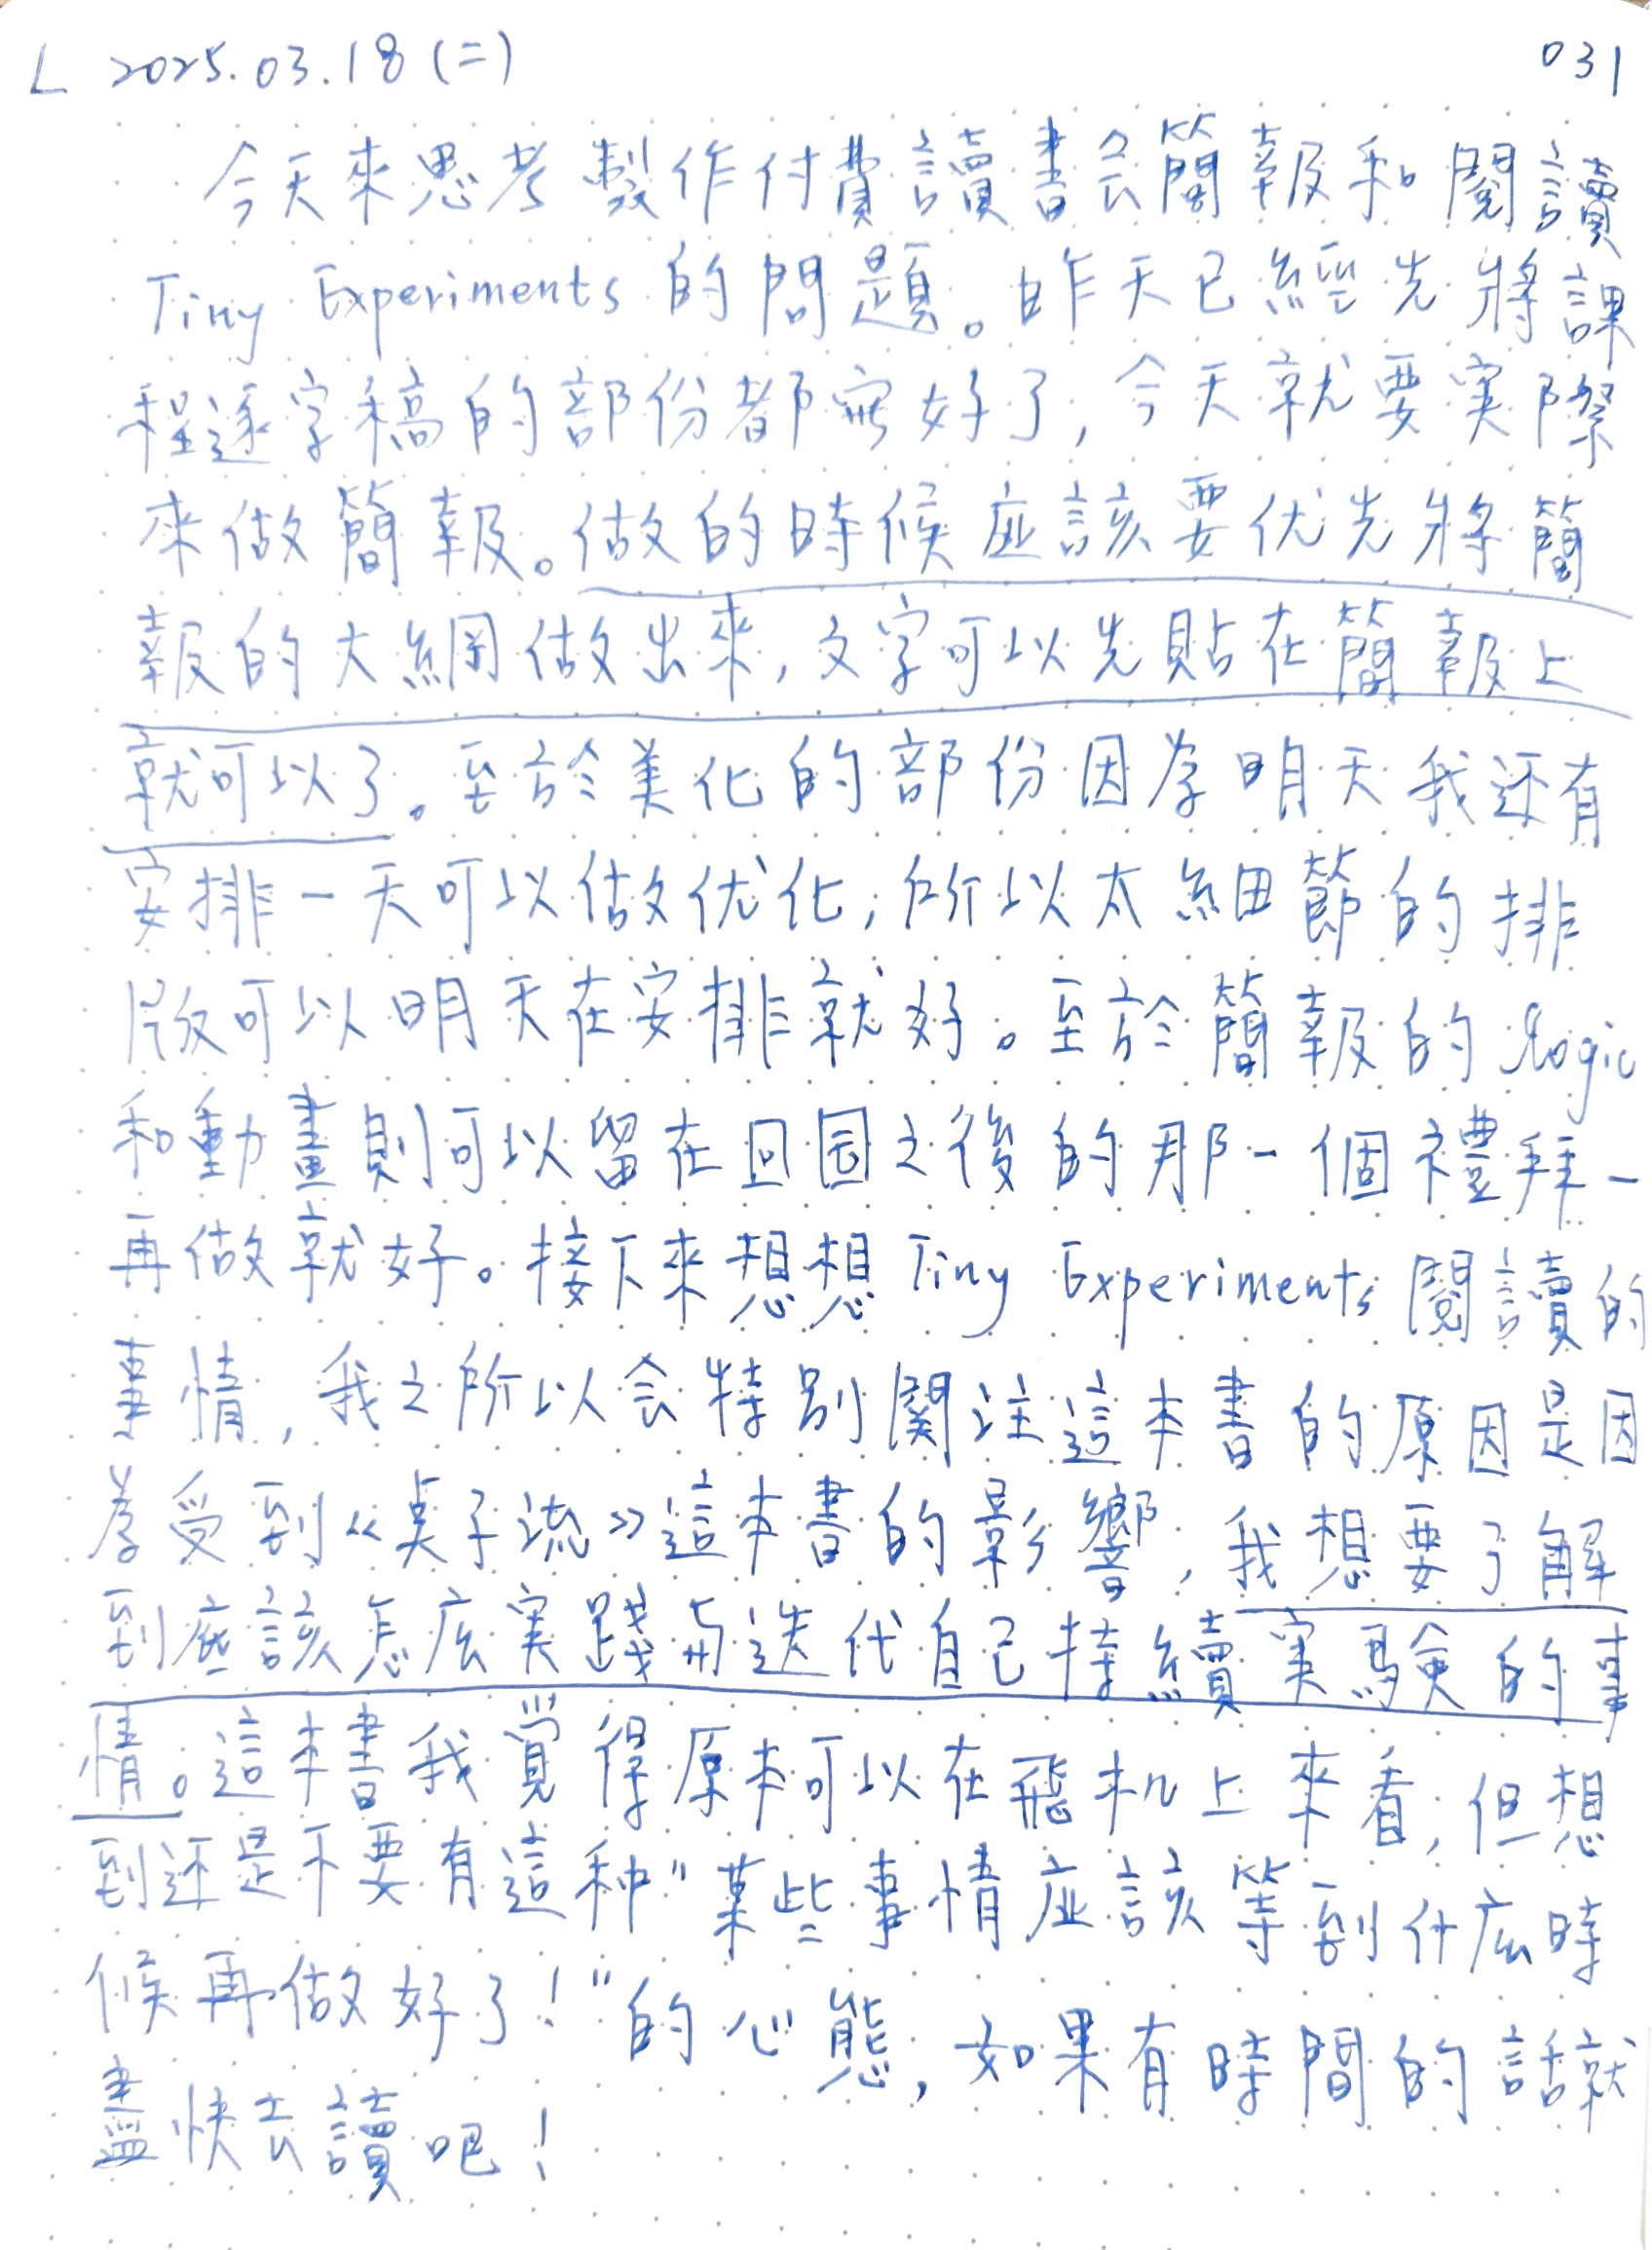 L 2025.03.18 (二) 031
今天來思考製作付費讀書会簡報和閱讀
Tiny Experiments 的問題。昨天已經先將課
程逐字稿的部份都寫好了,今天就要実際
來做簡報。做的時候应該要优先將簡
報的大綱做出來,文字可以先貼在簡報上
就可以了。至於美化的部份因為明天我还有
安排一天可以做优化,所以太細節的排
版可以明天在安排就好。至於簡報的 logic
和動畫則可以留在回国之後的那一個禮拜一
再做就好。接下來想想 Tiny Experiments 閱讀的
事情,我之所以会特別関注這本書的原因是因
為受到《莫子流》這本書的影響,我想要了解
到底該怎麼実踐與迭代自己持續実験的事
情。這本書我覚得原本可以在飛机上來看,但想
到还是不要有這种"某些事情应該等到什麼時
候再做好了!"的心態,如果有時間的話就
盡快去讀吧!